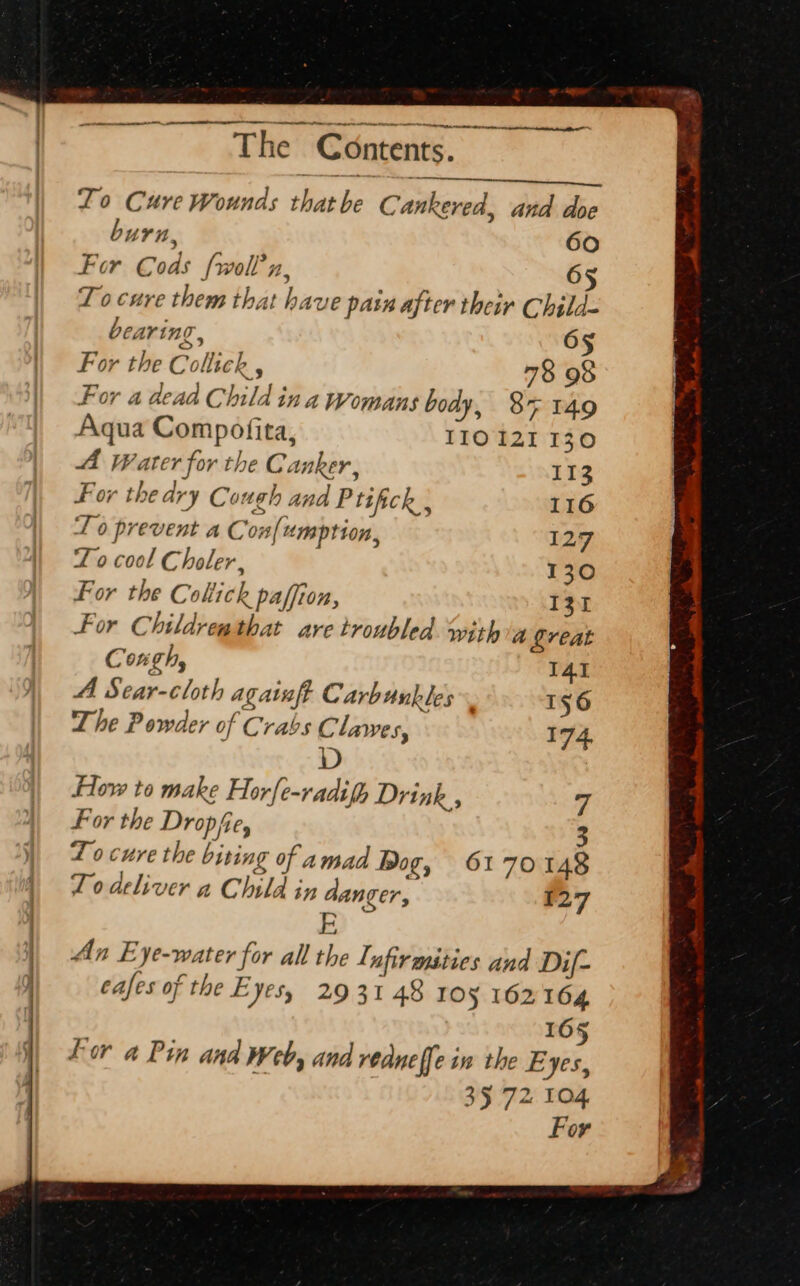 The Contents.
To Cure Wounds that be Cankered, and doe
burn, 60
For Cods ſwoll'n, 65
To cure them that have pain after their Child-
bearing, 65
For the Collick, 78 98
For a dead Child in a Womans body, 87 149
Aqua Compoſita, 110 121 130
A Water for the Canker, 113
For the dry Cough and Ptiſick, 116
To prevent a Conſumption, 127
To cool Choler, 130
For the Collick paſſion, 131
For Children that are troubled with a great
Cough, 141
A Sear-cloth againſt Carbunkles, 156
The Powder of Crabs Clawes, 174
D
How to make Horſe-radiſh Drink, 7
For the Dropſie, 3
To cure the biting of a mad Dog, 61 70 148
To deliver a Child in danger, 127
E
An Eye-water for all the Infirmities and Diſ-
eaſes of the Eyes, 29 31 48 105 162 164
165
For a Pin and Web, and redneſſe in the Eyes,
35 72 104
For